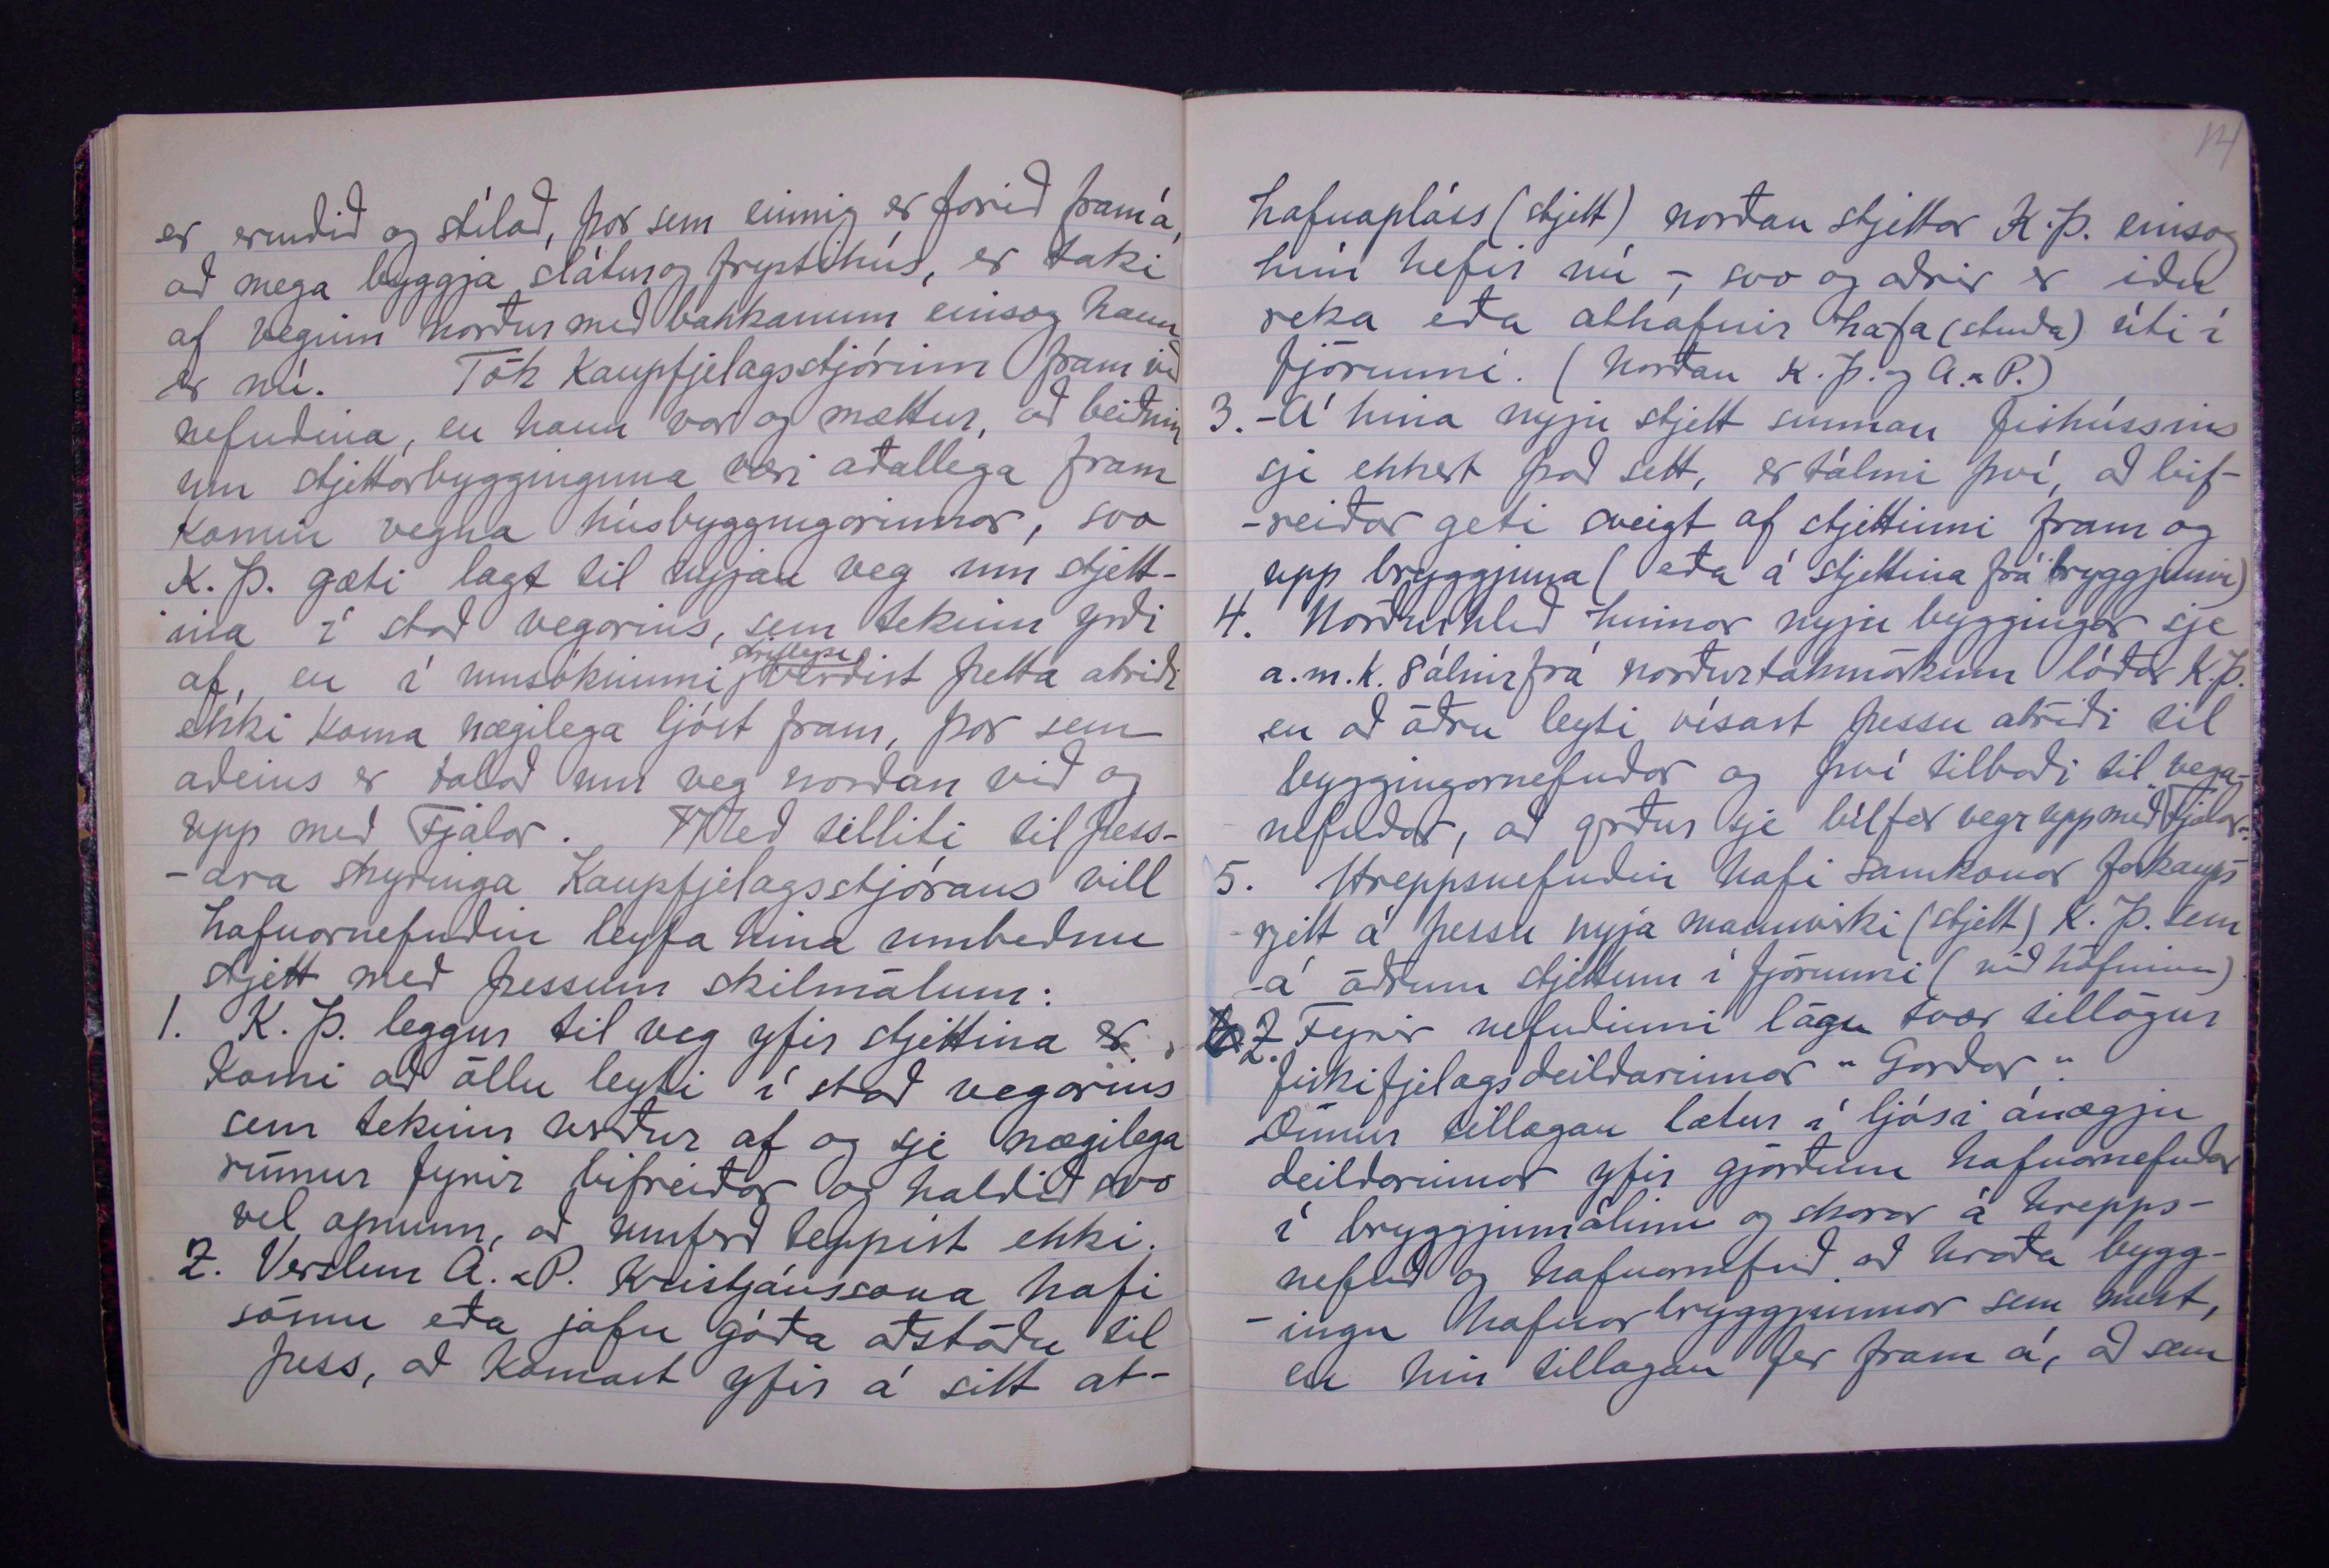 er erindið og stílað, þar sem einnig er farið fram á,
að mega byggja slátur og frystihús, er taki
af veginn norður með bakkanum einsog hann
er nú. Tók Kaupfjelagsstjórinn fram við
nefndina, en hann var og mættur, að beiðnin
um stjettarbygginguna væri aðallega fram
komin vegna húsbyggingarinnar, svo
K. Þ. gæti lagt til nýjan veg um stjett-
ina í stað vegarins, sem tekinn yrði
af, en í umsókninni virðist þetta atriði
ekki koma nægilega ljóst fram, þar sem
aðeins er talað um veg norðan við og
upp með Fjalar. Með tilliti til þess-
-ara skýringa Kaupfjelagsstjórans vill
hafnarnefndin leyfa hina umbeðnu
stjett með þessum skilmálum:
1. K. Þ. leggur til veg yfir stjettina er
komi að öllu leyti í stað vegarins
sem tekinn verður af og sje nægilega
rúmur fyrir bifreiðar og haldið svo
vel opnum, að umferð teppist ekki.
2. Verslun Á. & P. Kristjánssona hafi
sömu eða jafn góða aðstöðu til
þess, að komast yfir á sitt at-
14
hafnapláss (stjett) norðan stjettar K. Þ. einsog
hún hefir nú -, svo og aðrir er iðn
reka eða athafnir hafa (stunda) úti í
fjörunni. (Norðan K. Þ. og Á. & P.)
3. - Á hina nyju stjett sunnan fishússins
sje ekkert það sett, er tálmi því, að bif-
-reiðar geti sveigt af stjettinni fram og
upp bryggjuna (eða á stjettina frá bryggjunni)
4. Norðurhlið hinnar nyju byggingar sje
a.m.k. 8 álnir frá norðurtakmörkum lóðar K. Þ.
en að öðru leyti vísast þessu atriði til
byggingarnefndar og því tilboði til vega-
nefndar, að gerður sje bílfær vegr upp með Fjalar.
5. Hreppsnefndin hafi samskonar forkaups
rjett á þessu nyja mannvirki (stjett) K. Þ. sem
-á öðrum stjettum í fjörunni (við höfnina)
2. Fyrir nefndinni lágu tvær tillögur
fiskifjelagsdeildarinnar "Garðar".
Önnur tillagan lætur í ljósi ánægju
deildarinnar yfir gjörðum hafnarnefndar
í bryggjumálinu og skorar á hrepps-
nefnd og hafnarnefnd að hraða bygg-
-ingu hafnarbryggjunnar sem mest,
en hin tillagan fer fram á, að sem